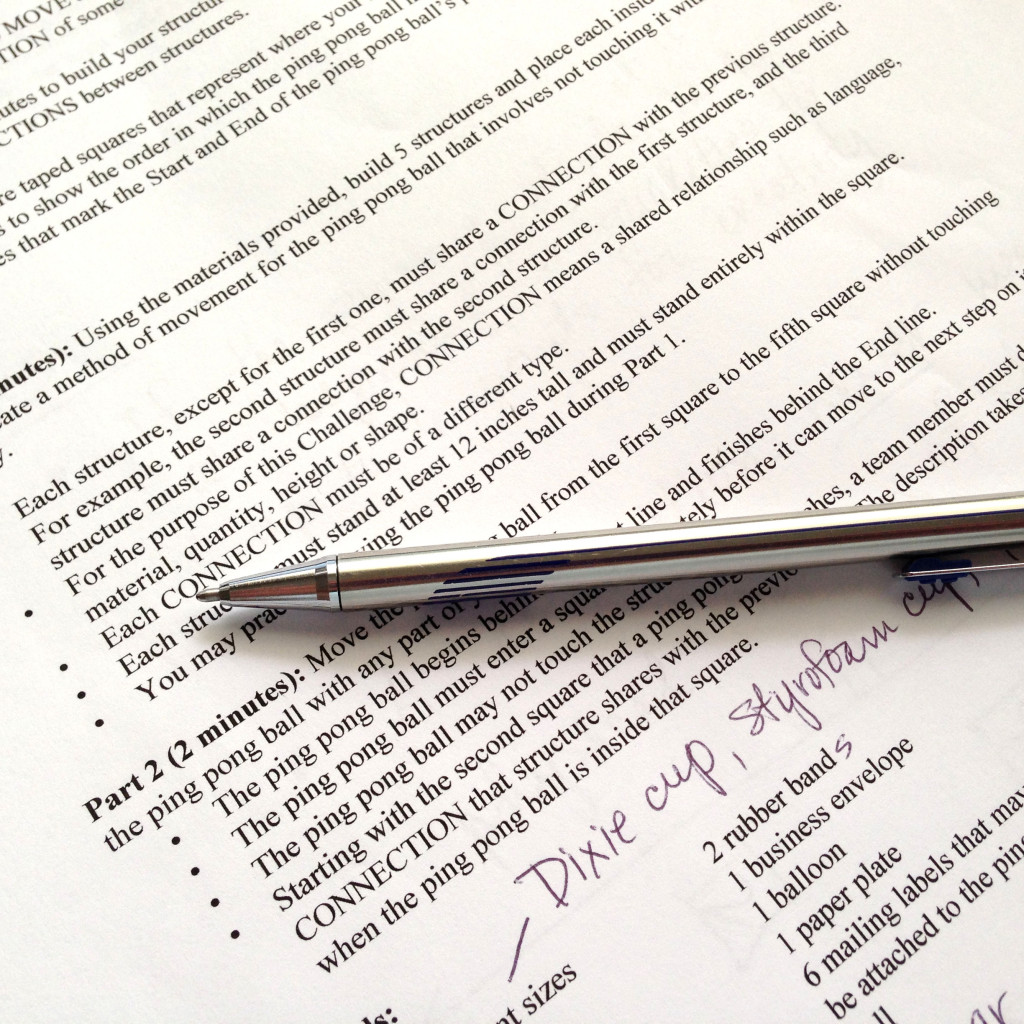 MOVE
TION of some
utes to build your structur
CTIONS between structures.
re taped squares that represent where your
s to show the order in which the ping pong ball
es that mark the Start and End of the ping pong ball's
nutes): Using the materials provided, build 5 structures and place each insi
eate a method of movement for the ping pong ball that involves not touching it wi
y.
Each structure, except for the first one, must share a CONNECTION with the previous structure.
For example, the second structure must share a connection with the first structure, and the third
structure must share a connection with the second structure.
For the purpose of this Challenge, CONNECTION means a shared relationship such as language,
material, quantity, height or shape.
• Each CONNECTION must be of a different type.
• Each struc must stand at least 12 inches tall and must stand entirely within the square.
• You may prac ing the ping pong ball during Part 1.
Part 2 (2 minutes): Move the ball from the first square to the fifth square without touching
the ping pong ball with any part of
• The ping pong ball begins behin line and finishes behind the End line.
• The ping pong ball must enter a squa tely before it can move to the next step on
• The ping pong ball may not touch the struc
• Starting with the second square that a ping pong hes, a team member must d
CONNECTION that structure shares with the previ The description take
when the ping pong ball is inside that square.
Dixie cup, styrofoam cup,
ls:
nt sizes
2 rubber bands
1 business envelope
1 balloon
1 paper plate
6 mailing labels that may
be attached to the ping
ll